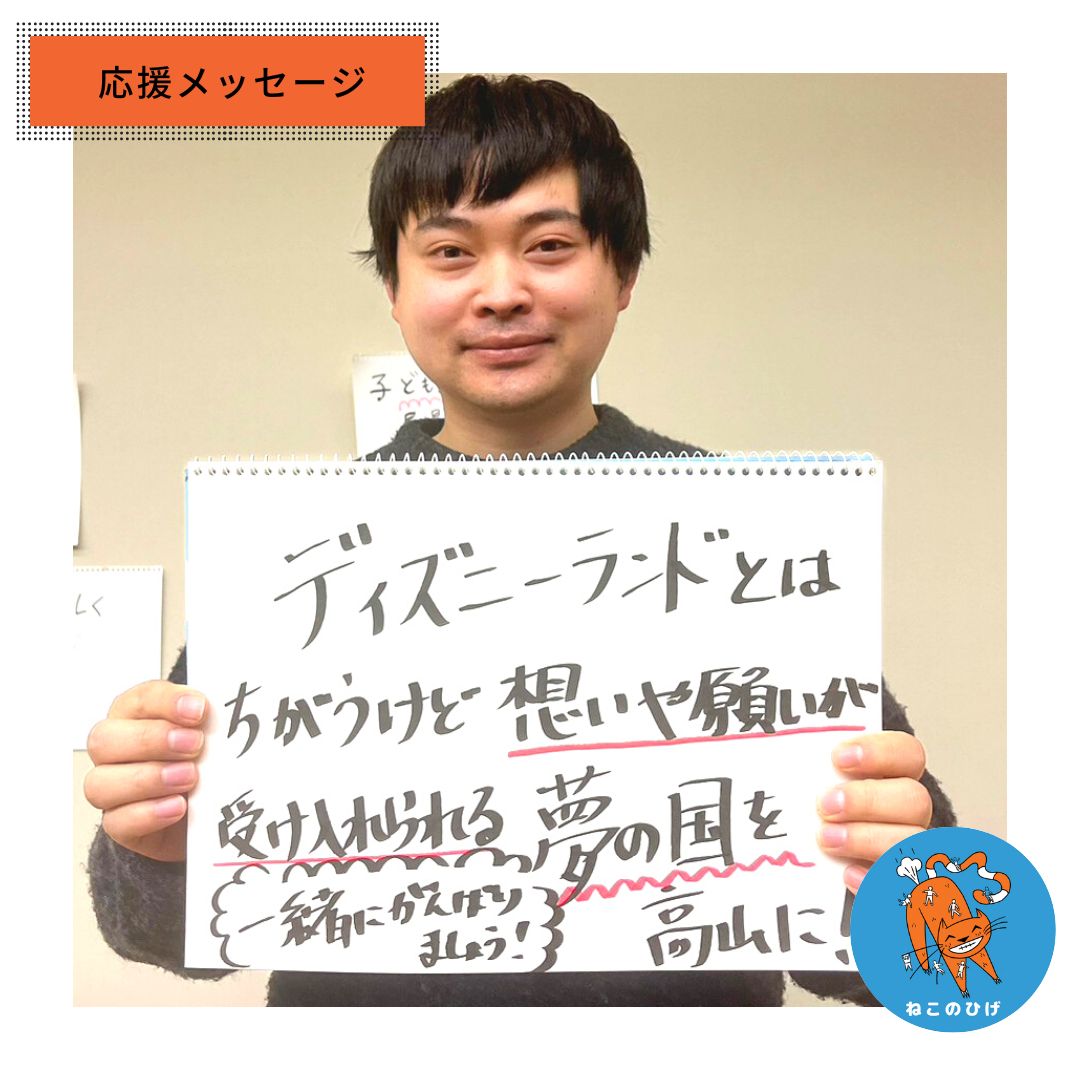 応援メッセージ
子ども
しく
ディズニーランドとは
ちがうけど想いや願いが
受け入れられる夢の国を
高山に!
一緒にがんばり
ましょう!
ねこのひげ